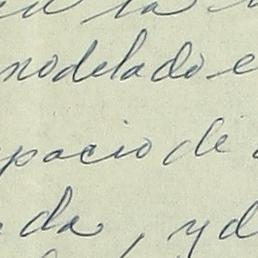 en la
modelado e
spacio de
da, y d